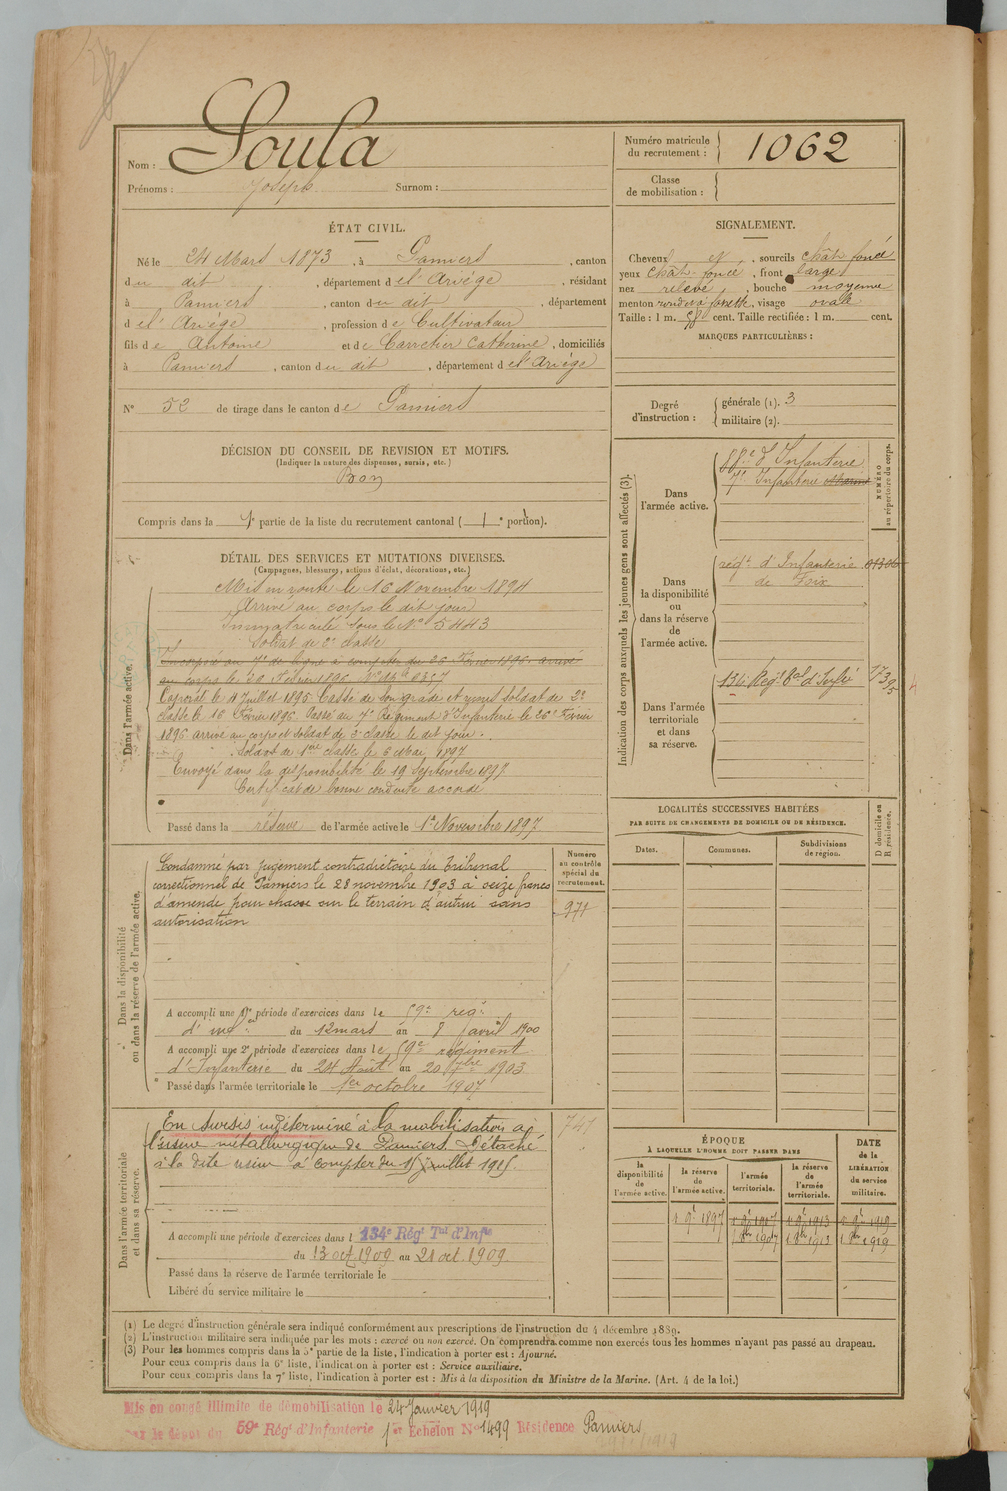 Nom : Soula
Prénoms : Joseph Surnom :
Numéro matricule du recrutement : 1062
Classe de mobilisation :
ÉTAT CIVIL.
Né le 24 Mars 1873, à Pamiers, canton
du dit, département de l'Ariège, résidant
à Pamiers, canton du dit, département
de l'Ariège, profession de Cultivateur
fils de Antoine et de Carretier Catherine, domiciliés
à Pamiers, canton du dit, département de l'Ariège
N° 52 de tirage dans le canton de Pamiers
SIGNALEMENT.
Cheveux et, sourcils chât foncé
yeux chât. foncé, front large
nez relevé, bouche moyenne
menton rond à fossette, visage ovale
Taille : 1 m. 58 cent. Taille rectifiée : 1 m. cent.
MARQUES PARTICULIÈRES :
Degré d'instruction : générale (1). 3
militaire (2).
DÉCISION DU CONSEIL DE REVISION ET MOTIFS.
(Indiquer la nature des dispenses, sursis, etc.)
Bon
Compris dans la 1e partie de la liste du recrutement cantonal ( 1e portion).
DÉTAIL DES SERVICES ET MUTATIONS DIVERSES.
(Campagnes, blessures, actions d'éclat, décorations, etc.)
Dans l'armée active.
Mis en route le 16 Novembre 1894
Arrivé au corps le dit jour
Immatriculé sous le N° 5443
Soldat de 2e classe
Incorporé au 7e de ligne à compter du 26 Février 1896. arrivé
au corps le 20 Février 1896
Caporal le 4 Juillet 1895. Cassé de son grade et remis soldat de 2e
classe le 16 Février 1896. Passé au 7e Régiment d'Infanterie le 26 Février
1896 arrivé au corps et soldat de 2e classe le dit jour.
Soldat de 1ère classe le 6 Mai 1897
Envoyé dans la disponibilité le 19 Septembre 1897
Certificat de bonne conduite accordé
Passé dans la réserve de l'armée active le 1er Novembre 1897
Indication des corps auxquels les jeunes gens sont affectés (3).
NUMÉRO au répertoire du corps.
Dans l'armée active.
88e d'Infanterie
7e Infanterie
Dans la disponibilité ou dans la réserve de l'armée active.
régt d'Infanterie 01306
de Foix
Dans l'armée territoriale et dans sa réserve.
134 Régt Tal d'Infie
LOCALITÉS SUCCESSIVES HABITÉES
PAR SUITE DE CHANGEMENTS DE DOMICILE OU DE RÉSIDENCE.
Dates. Communes. Subdivisions de région. D domicile ou R résidence.
Dans la disponibilité ou dans la réserve de l'armée active.
Numéro au contrôle spécial du recrutement.
971
Condamné par jugement contradictoire du Tribunal
correctionnel de Pamiers le 28 novembre 1903 à seize francs
d'amende pour chasse sur le terrain d'autrui sans
autorisation
A accompli une 1re période d'exercices dans le 59e rég.
d'inf. du 12 mars au 8 avril 1900
A accompli une 2e période d'exercices dans le 59e régiment
d'Infanterie du 24 Août au 20 7bre 1903
Passé dans l'armée territoriale le 1er octobre 1907
Dans l'armée territoriale et dans sa réserve.
741
En sursis indéterminé à la mobilisation à
l'usine métallurgique de Pamiers. Détaché
à la dite usine à compter du 15 juillet 1915.
A accompli une période d'exercices dans l 134e Régt Tal d'Infie
du 13 oct 1909 au 21 oct. 1909
Passé dans la réserve de l'armée territoriale le
Libéré du service militaire le
ÉPOQUE
À LAQUELLE L'HOMME DOIT PASSER DANS
la disponibilité de l'armée active. la réserve de l'armée active. l'armée territoriale. la réserve de l'armée territoriale.
DATE de la LIBÉRATION du service militaire.
1 9e 1897 1 9e 1907 1 9e 1913 1 9e 1919
1 8bre 1907 1 8bre 1913 1 8bre 1919
(1) Le degré d'instruction générale sera indiqué conformément aux prescriptions de l'instruction du 4 décembre 1889.
(2) L'instruction militaire sera indiquée par les mots : exercé ou non exercé. On comprendra comme non exercés tous les hommes n'ayant pas passé au drapeau.
(3) Pour les hommes compris dans la 5e partie de la liste, l'indication à porter est : Ajourné.
Pour ceux compris dans la 6e liste, l'indication à porter est : Service auxiliaire.
Pour ceux compris dans la 7e liste, l'indication à porter est : Mis à la disposition du Ministre de la Marine. (Art. 4 de la loi.)
Mis en congé illimité de démobilisation le 24 Janvier 1919
par le dépôt du 59e Régt d'Infanterie 1er Echelon N° 1499 Résidence Pamiers